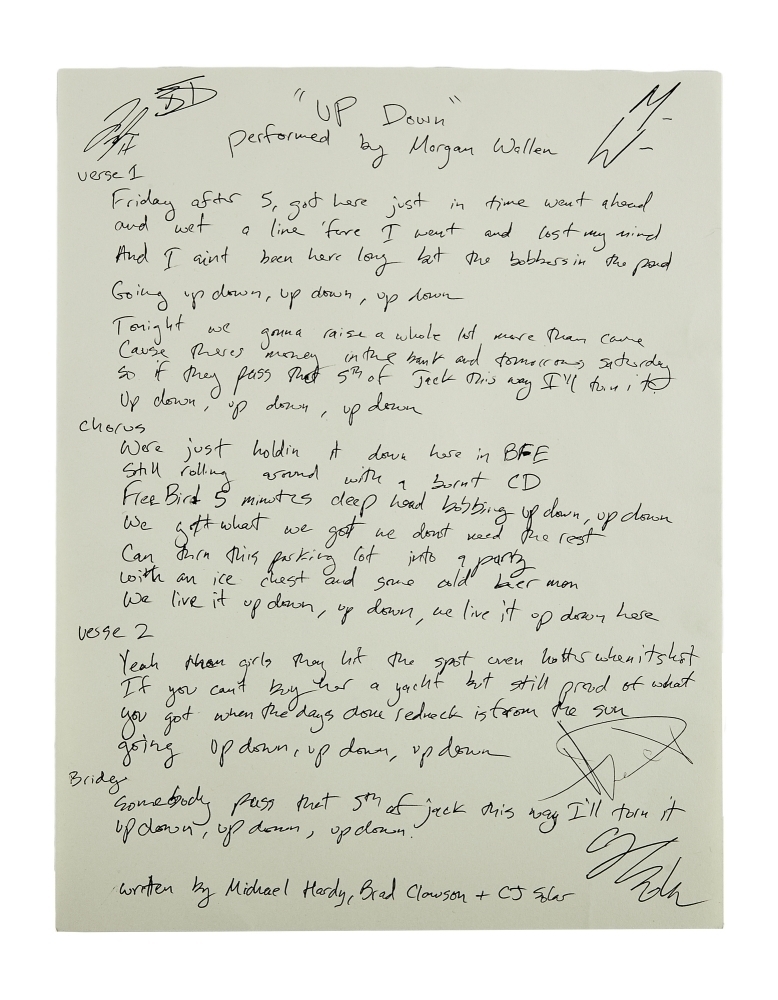 "UP Down"
performed by Morgan Wallen
verse 1
Friday after 5, got here just in time went ahead
and wet a line 'fore I went and lost my mind
And I aint been here long but the bobbers in the pond
Going up down, up down, up down
Tonight we gonna raise a whole lot more than cane
Cause theres money in the bank and tomorrows saturday
so if they pass that 5th of Jack this way I'll turn it
Up down, up down, up down
Chorus
Were just holdin it down here in BFE
Still rolling around with a burnt CD
Free Bird 5 minutes deep head bobbing up down, up down
We got what we got we dont need the rest
Can turn this parking lot into a party
with an ice chest and some cold beer man
We live it up down, up down, we live it up down here
verse 2
Yeah them girls they hit the spot even hotter when its hot
If you can't buy her a yacht but still proud of what
you got when the days done redneck is from the sun
going up down, up down, up down
Bridge
somebody pass that 5th of jack this way I'll turn it
up down, up down, up down.
written by Michael Hardy, Brad Clawson + CJ Solar